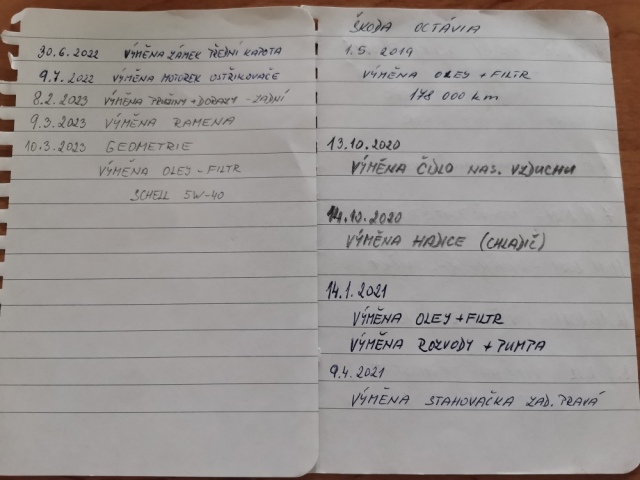 30.6.2022 VÝMĚNA ZÁMEK PŘEDNÍ KAPOTA
9.7.2022 VÝMĚNA MOTOREK OSTŘIKOVAČE
8.2.2023 VÝMĚNA PRUŽIN + DORAZY - ZADNÍ
9.3.2023 VÝMĚNA RAMENA
10.3.2023 GEOMETRIE
VÝMĚNA OLEJ - FILTR
SCHELL 5W-40
ŠKODA OCTÁVIA
1.5.2019
VÝMĚNA OLEJ + FILTR
178 000 km
13.10.2020
VÝMĚNA ČIDLO NAS. VZDUCHU
14.10.2020
VÝMĚNA HADICE (CHLADIČ)
14.1.2021
VÝMĚNA OLEJ + FILTR
VÝMĚNA ROZVODY + PUMPA
9.4.2021
VÝMĚNA STAHOVAČKA ZAD. PRAVÁ